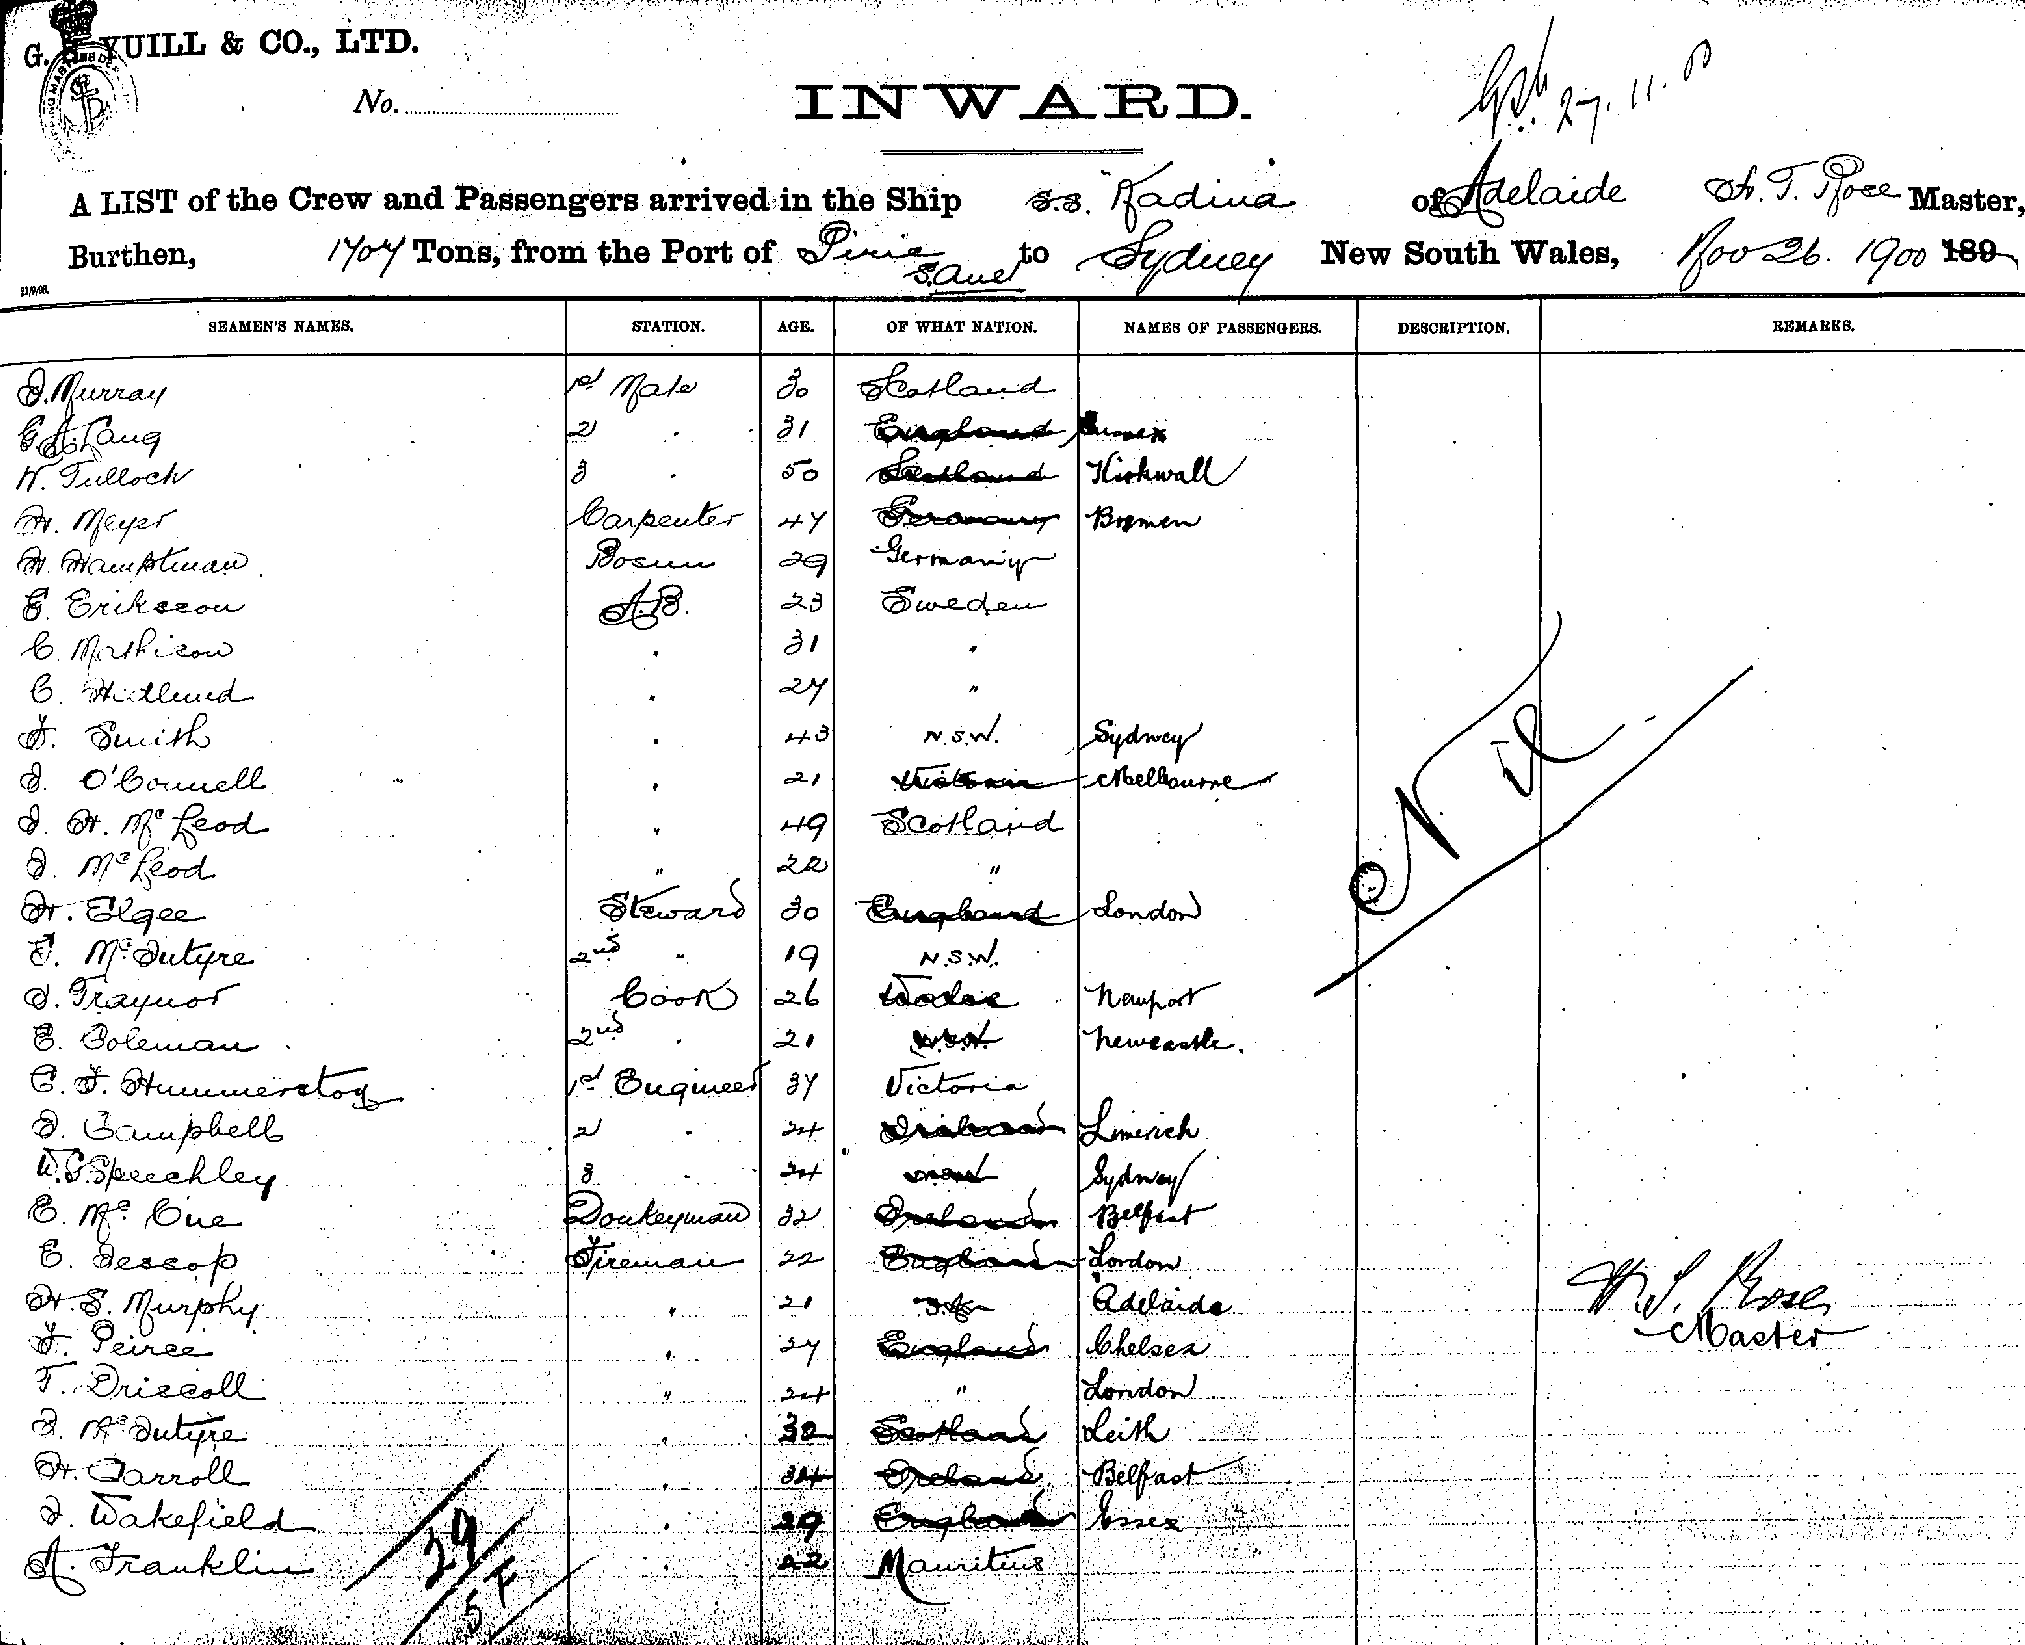 G. YUILL & CO., LTD.
No.
INWARD.
27.11.00
A LIST of the Crew and Passengers arrived in the Ship S.S. "Kadina of Adelaide H. T. Rose Master,
Burthen, 1707 Tons, from the Port of Pirie to Sydney New South Wales, Nov 26. 1900 189
SEAMEN'S NAMES. STATION. AGE. OF WHAT NATION. NAMES OF PASSENGERS. DESCRIPTION. REMARKS.
J. Murray 1st Mate 30 Scotland
G. A. Lang 2 " 31 England
W. Tulloch 3 " 50 Scotland Kirkwall
H. Meyer Carpenter 47 Germany Bremen
H. Hamptman Bosun 29 Germany
G. Eriksson A.B. 23 Sweden
C. Mathison " 31 "
C. Hedlund " 27 "
F. Smith " 43 N.S.W. Sydney
J. O'Connell " 21 Victoria Melbourne
J. H. McLeod " 49 Scotland
J. McLeod " 22 "
Nil
H. Elgee Steward 30 England London
J. McIntyre 2nd " 19 N.S.W.
J. Traynor Cook 26 Wales Newport
E. Coleman 2nd " 21 N.S.W. Newcastle.
C. F. Hummerston 1st Engineer 37 Victoria
J. Campbell 2 " 24 Ireland Limerick
W. G. Speechley 3 " 24 NSW Sydney
E. McCue Donkeyman 32 Ireland Belfast
E. Jessop Fireman 22 England London
H. S. Murphy " 21 Adelaide
F. Peiree " 27 England Chelsea
T. Driscoll " 24 " London
J. McIntyre " 32 Scotland Leith
H. Carroll " 34 Ireland Belfast
J. Wakefield " 29 England Essex
A. Franklin " 22 Mauritius
H. T. Rose
Master
29